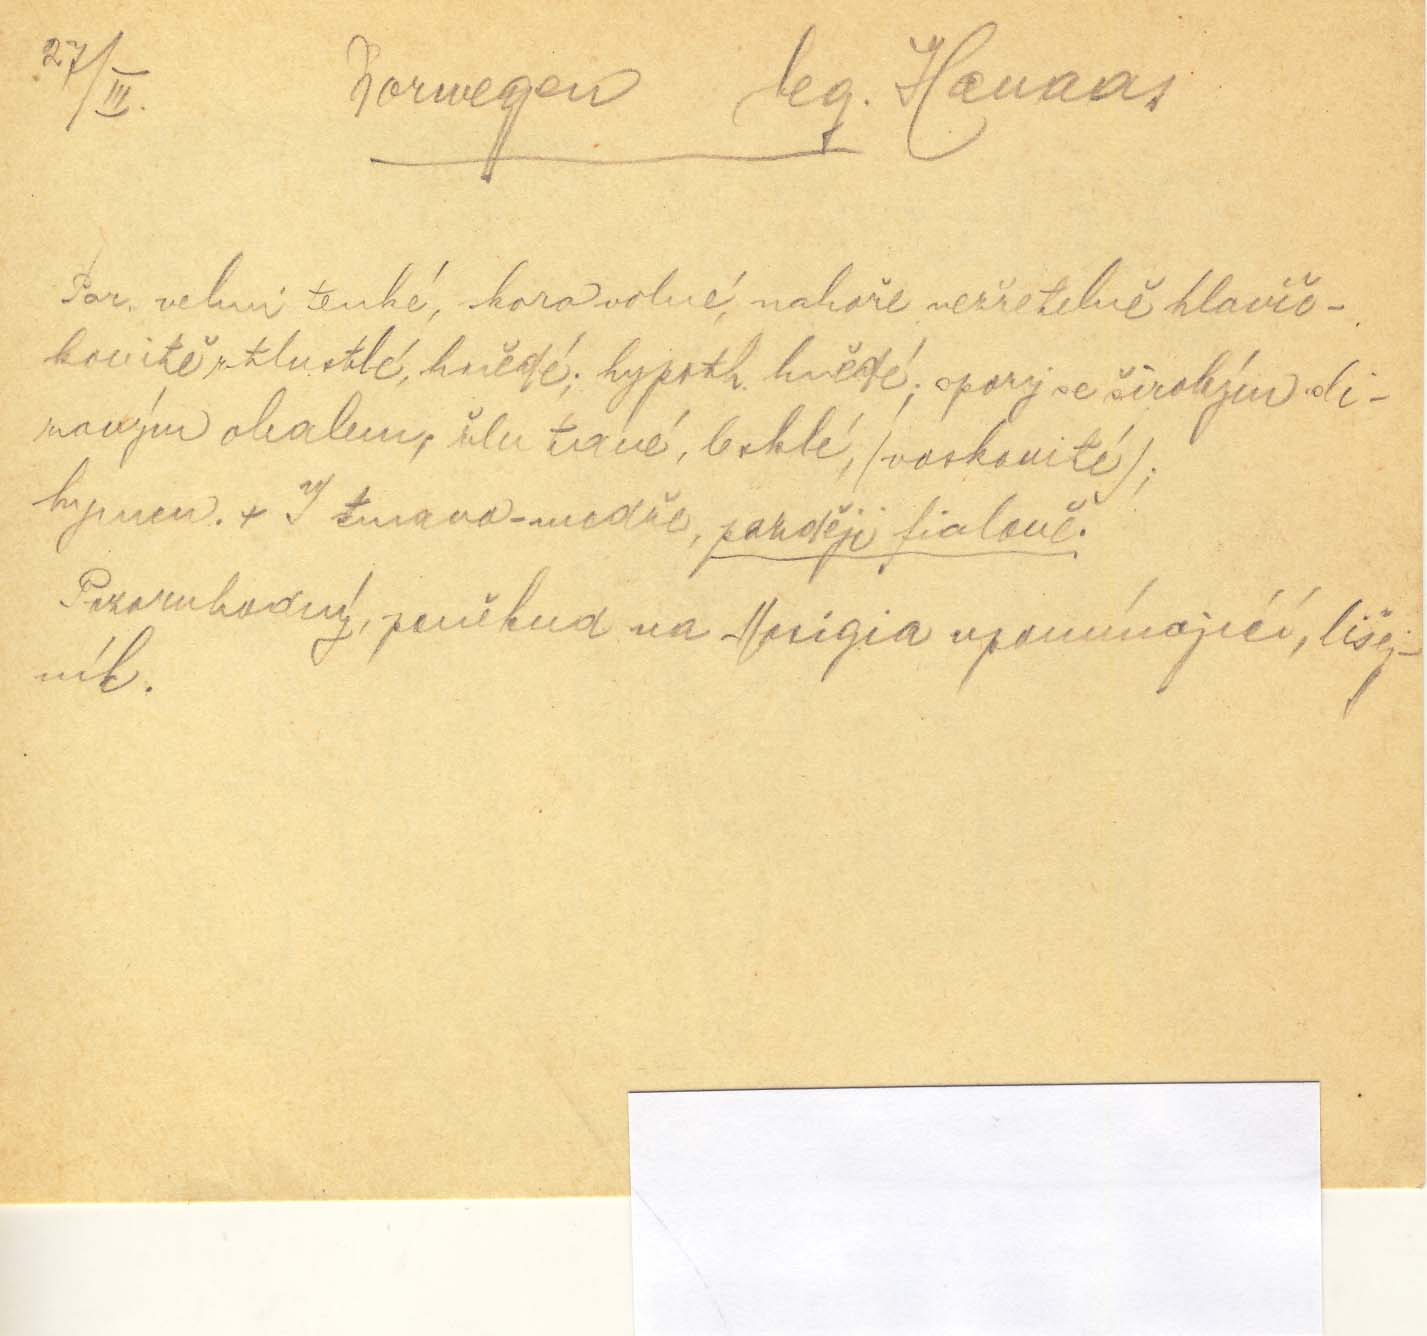 27/III. Norwegen leg. Havaas
Par. velmi tenké, skoro volné, nahoře nezřetelně hlavič-
kovitě ztlustlé, hnědé; hypoth. hnědé; spory se širokým sli-
zovým obalem, žlutavé, lesklé, (voskovité);
hymen. + J tmavo-modře, později fialově.
Pozoruhodný, poněkud na Mosigia upomínající, lišej-
ník.